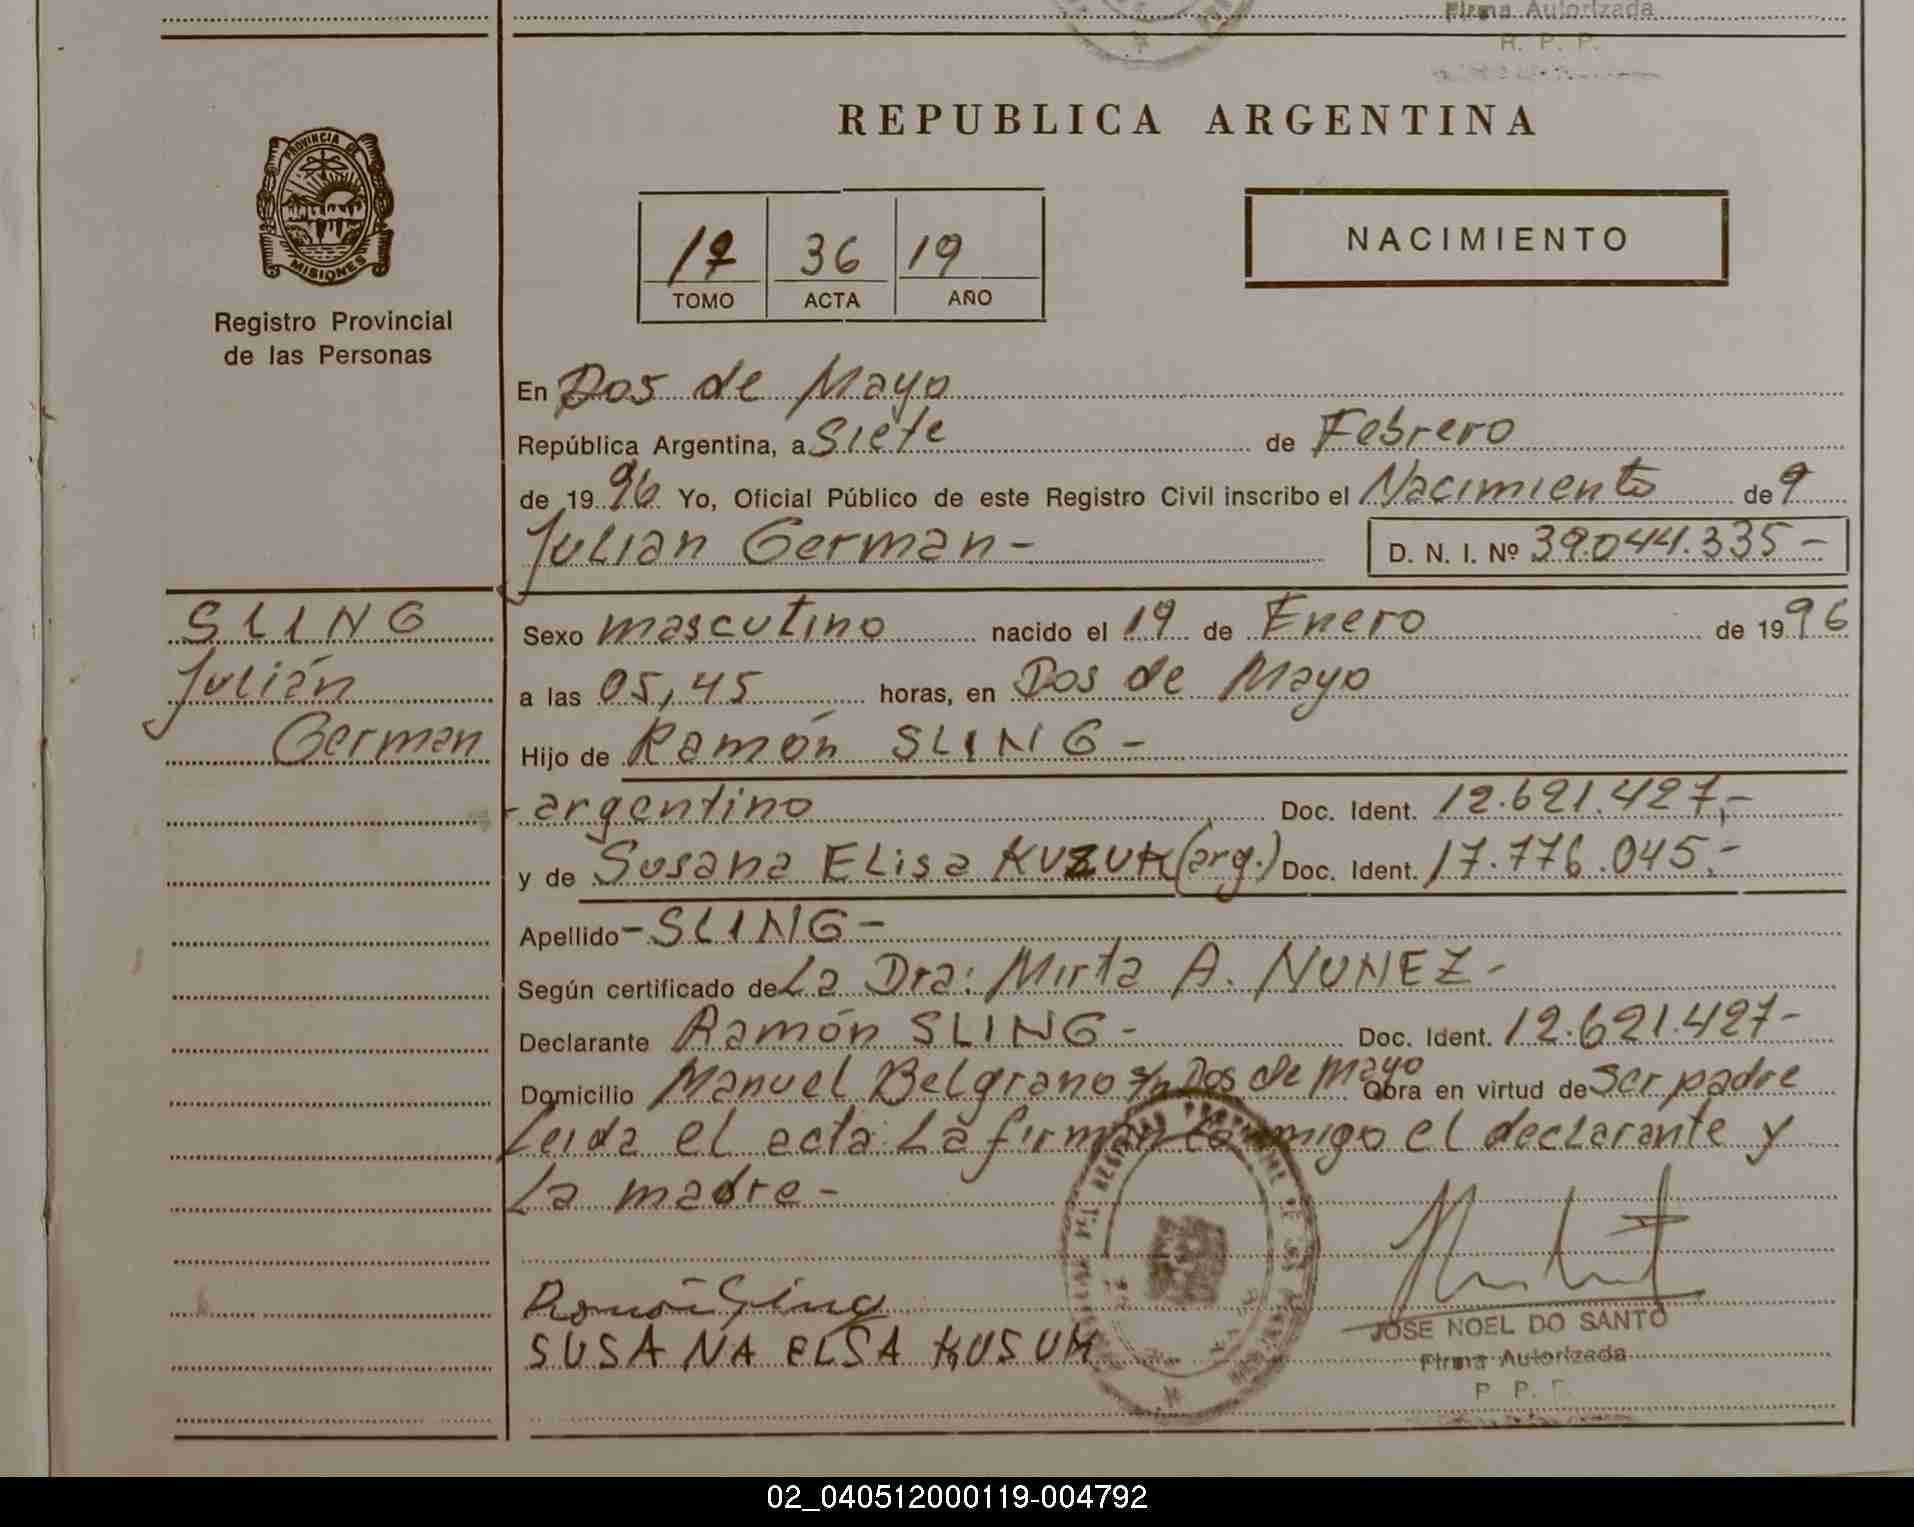 Firma Autorizada
R. P. P.
REPUBLICA ARGENTINA
PROVINCIA DE
MISIONES
Registro Provincial
de las Personas
17 36 19
TOMO ACTA AÑO
NACIMIENTO
En Dos de Mayo
República Argentina, a Siete de Febrero
de 1996 Yo, Oficial Público de este Registro Civil inscribo el Nacimiento de 9
Julian German - D. N. I. Nº 39.044.335-
SLING
Julián
German
Sexo masculino nacido el 19 de Enero de 1996
a las 05,45 horas, en Dos de Mayo
Hijo de Ramón SLING -
- argentino Doc. Ident. 12.621.427,-
y de Susana ELisa KUZUK (arg.) Doc. Ident. 17.776.045.-
Apellido - SLING -
Según certificado de La Dra: Mirta A. NUNEZ -
Declarante Ramón SLING - Doc. Ident. 12.621.427-
Domicilio Manuel Belgrano s/n Dos de Mayo Obra en virtud de ser padre
Leida el acta La firman conmigo el declarante y
La madre -
Ramón Sling
SUSANA ELSA KUSUK
JOSE NOEL DO SANTO
Firma Autorizada
02_040512000119-004792